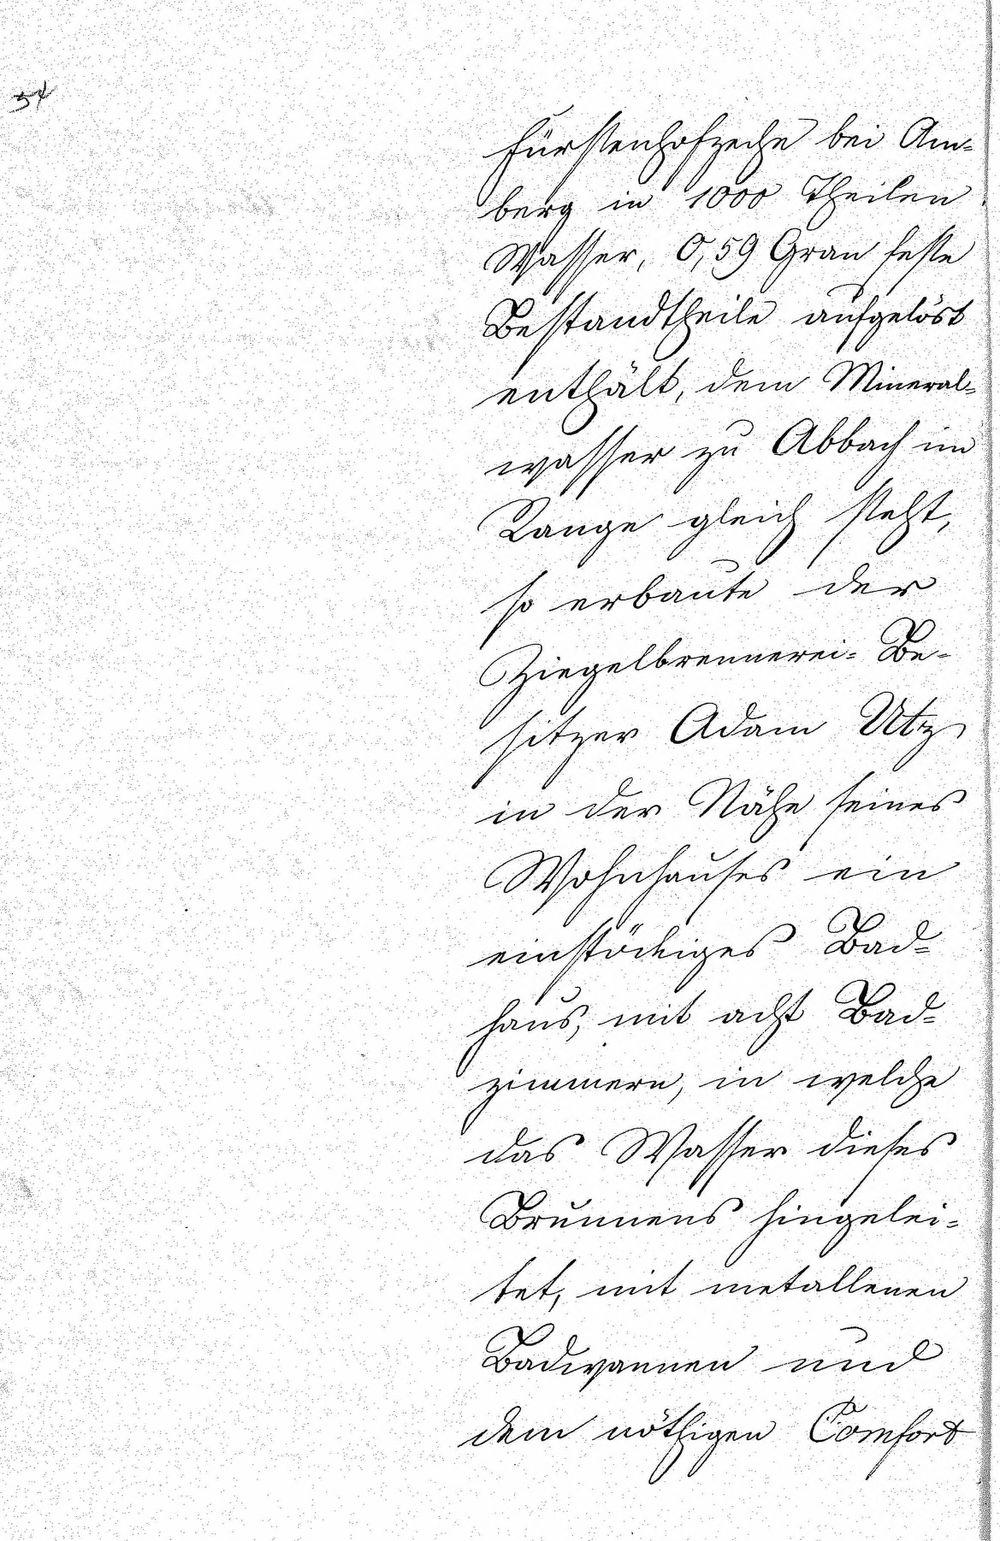 54
Fürstenhofzeche bei Am-
berg in 1000 Theilen
Wasser, 0,59 Gran feste
Bestandtheile aufgelöst
enthält, dem Mineral-
wasser zu Abbach im
Range gleich steht,
so erbaute der
Ziegelbrennerei-Be-
sitzer Adam Utz
in der Nähe seines
Wohnhauses ein
einstöckiges Bad-
haus, mit acht Bad-
zimmern, in welche
das Wasser dieses
Brunnens hingelei-
tet, mit metallenen
Badwannen und
dem nöthigen Comfort